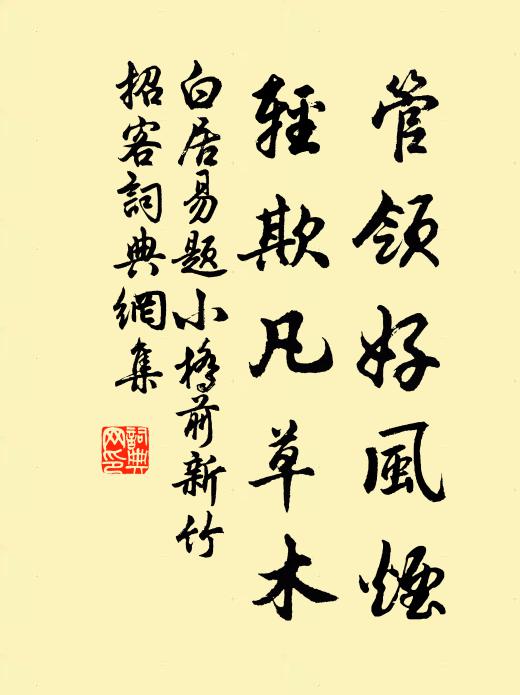 管領好風煙
輕欺凡草木
白居易題小橋前新竹
招客詞典網集
詞典
网印